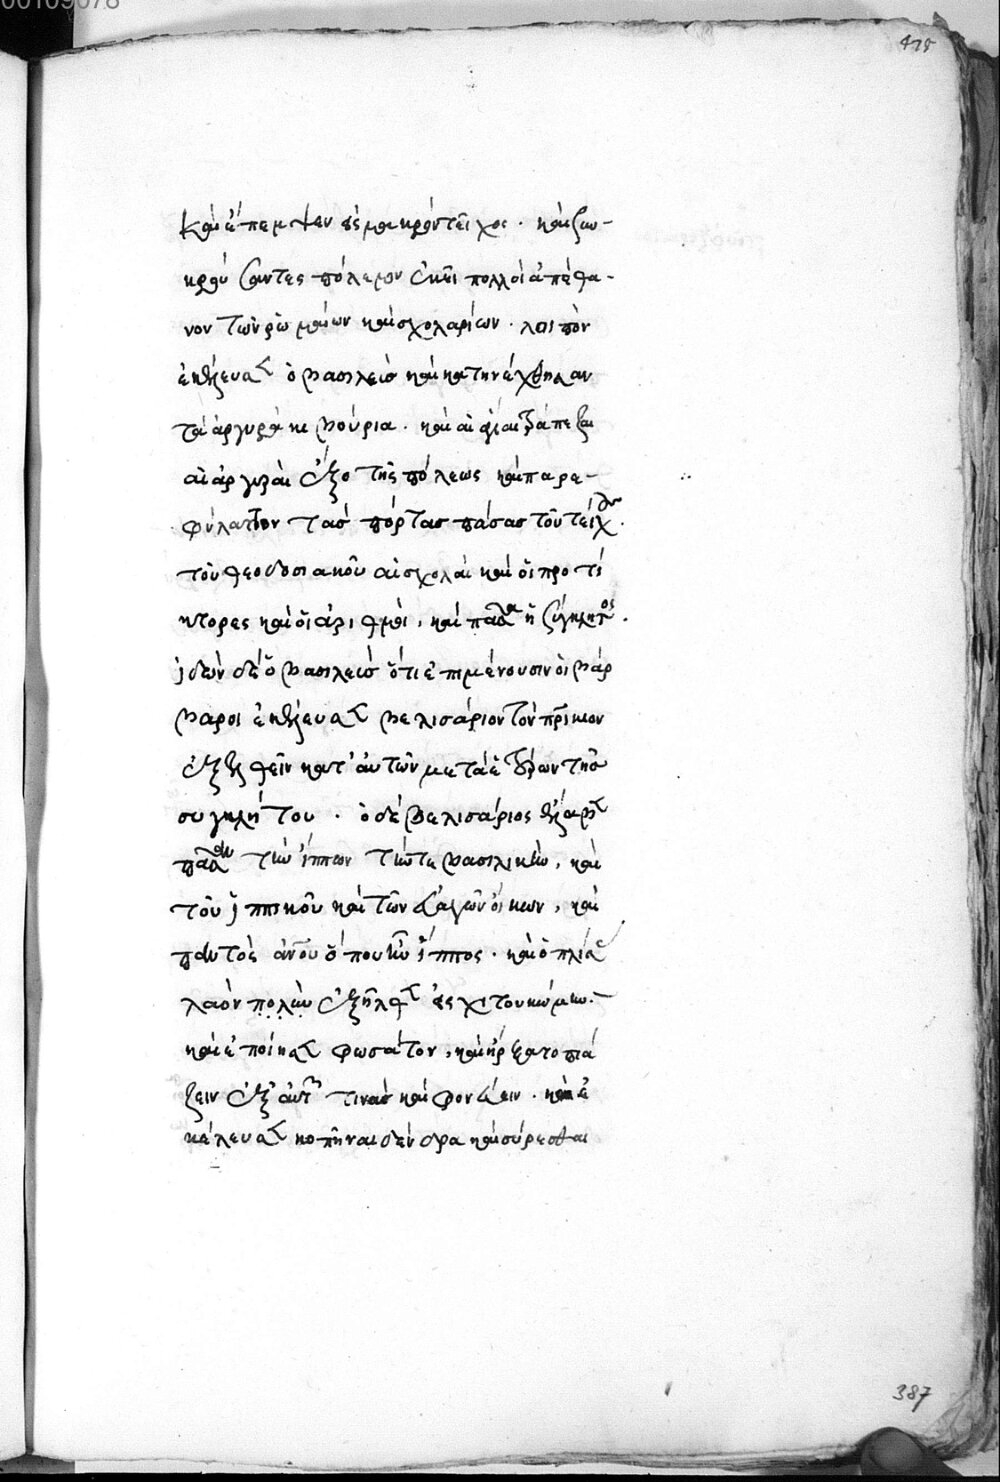 00109078
415
καὶ ἔπεμψεν εἰς μακρὸν τεῖχος. καὶ ζω-
κρού σαντες πόλεμον ἐκεῖ πολλοὶ ἀπέθα-
νον τῶν ῥωμαίων καὶ σχολαρίων. λοιπὸν
ἐκέλευσεν ὁ βασιλεὺς καὶ κατηνέχθησαν
τὰ ἀργυρὰ κιβούρια. καὶ αἱ ἅγιαι τράπεζαι
αἱ ἀργυραὶ ἔξο τῆς πόλεως καὶ παρε-
φύλαττον τὰς πόρτας πάσας τοῦ τείχους.
τοῦ θεοδοσιακοῦ αἱ σχολαὶ καὶ οἱ προτί
κτορες καὶ οἱ ἀριθμοὶ, καὶ πᾶσα ἡ σύγκλητος.
ἰδὼν δὲ ὁ βασιλεὺς ὅτι ἐπιμένουσιν οἱ βάρ
βαροι ἐκέλευσε βελισάριον τὸν πρίκιον
ἐξελθεῖν κατ' αὐτῶν μετὰ ἑτέρων τῆς
συγκλήτου. ὁ δὲ βελισάριος ἔλαβε
πᾶσαν τὴν ἵππον τήν τε βασιλικὴν, καὶ
τοῦ ἱππικοῦ καὶ τῶν εὐαγῶν οἴκων, καὶ
παντὸς ἀνου ὅπου ἦν ἵππος. καὶ ὁπλίσας
λαὸν πολὺν ἐξῆλθεν εἰς χιτουκώμην.
καὶ ἐποίησε φωσάτον, καὶ ἤρξατο πιά
ζειν ἐξ αὐτῶν τινὰς καὶ φονεύειν. καὶ ἐ
κέλευσε κοπῆναι δένδρα καὶ σύρεσθαι
387